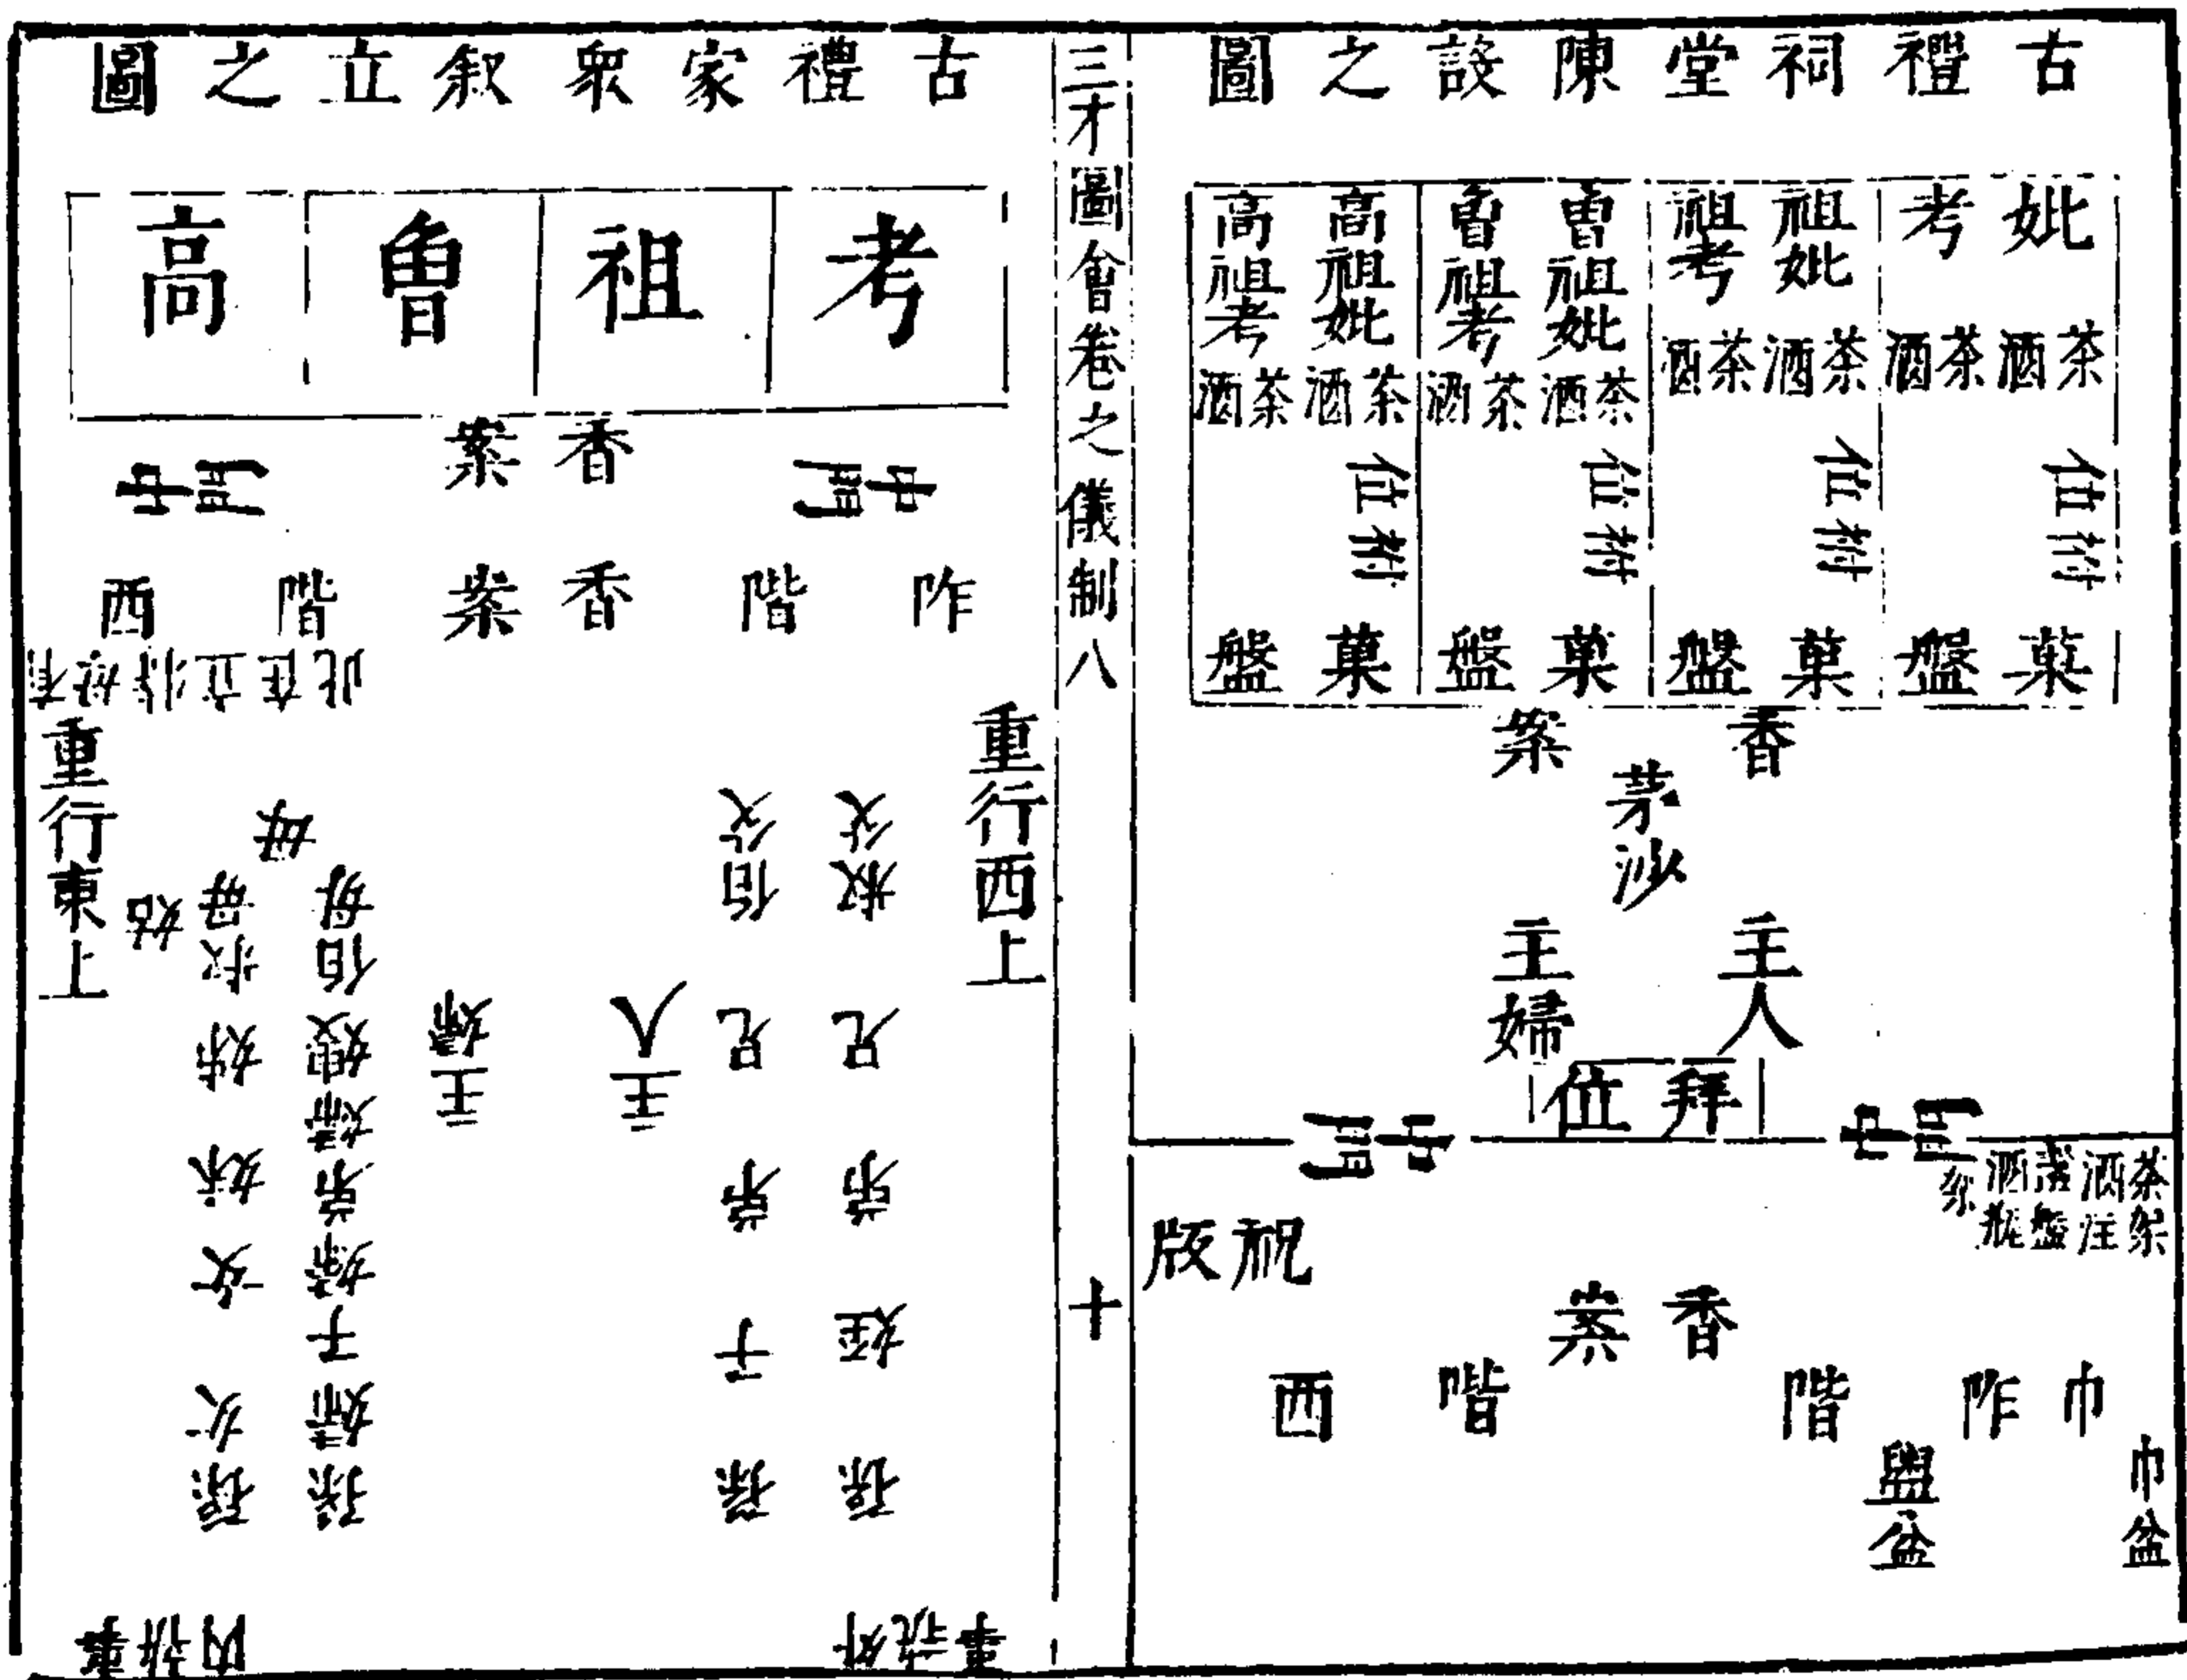 古禮祠堂陳設之圖
妣
考
祖妣
祖考
曾祖妣
曾祖考
高祖妣
高祖考
茶酒
茶酒
茶酒
茶酒
茶酒
茶酒
茶酒
茶酒
祔位
祔位
祔位
祔位
菓盤
菓盤
菓盤
菓盤
香案
茅沙
主人
主婦
拜位
茶架
酒注
盞盤
酒瓶
祝版
香案
阼階
西階
巾
盥盆
巾
盆
三才圖會卷之儀制八
十
古禮家眾叙立之圖
考
祖
曾
高
香案
香案
阼階
西階
重行西上
叔父
伯父
兄
兄
弟
弟
姪
子
孫
孫
外執事
主人
主婦
有母特立在此
母
伯母
叔母
姑
嫂
姊
弟婦
妹
子婦
女
孫婦
孫女
重行東上
內執事